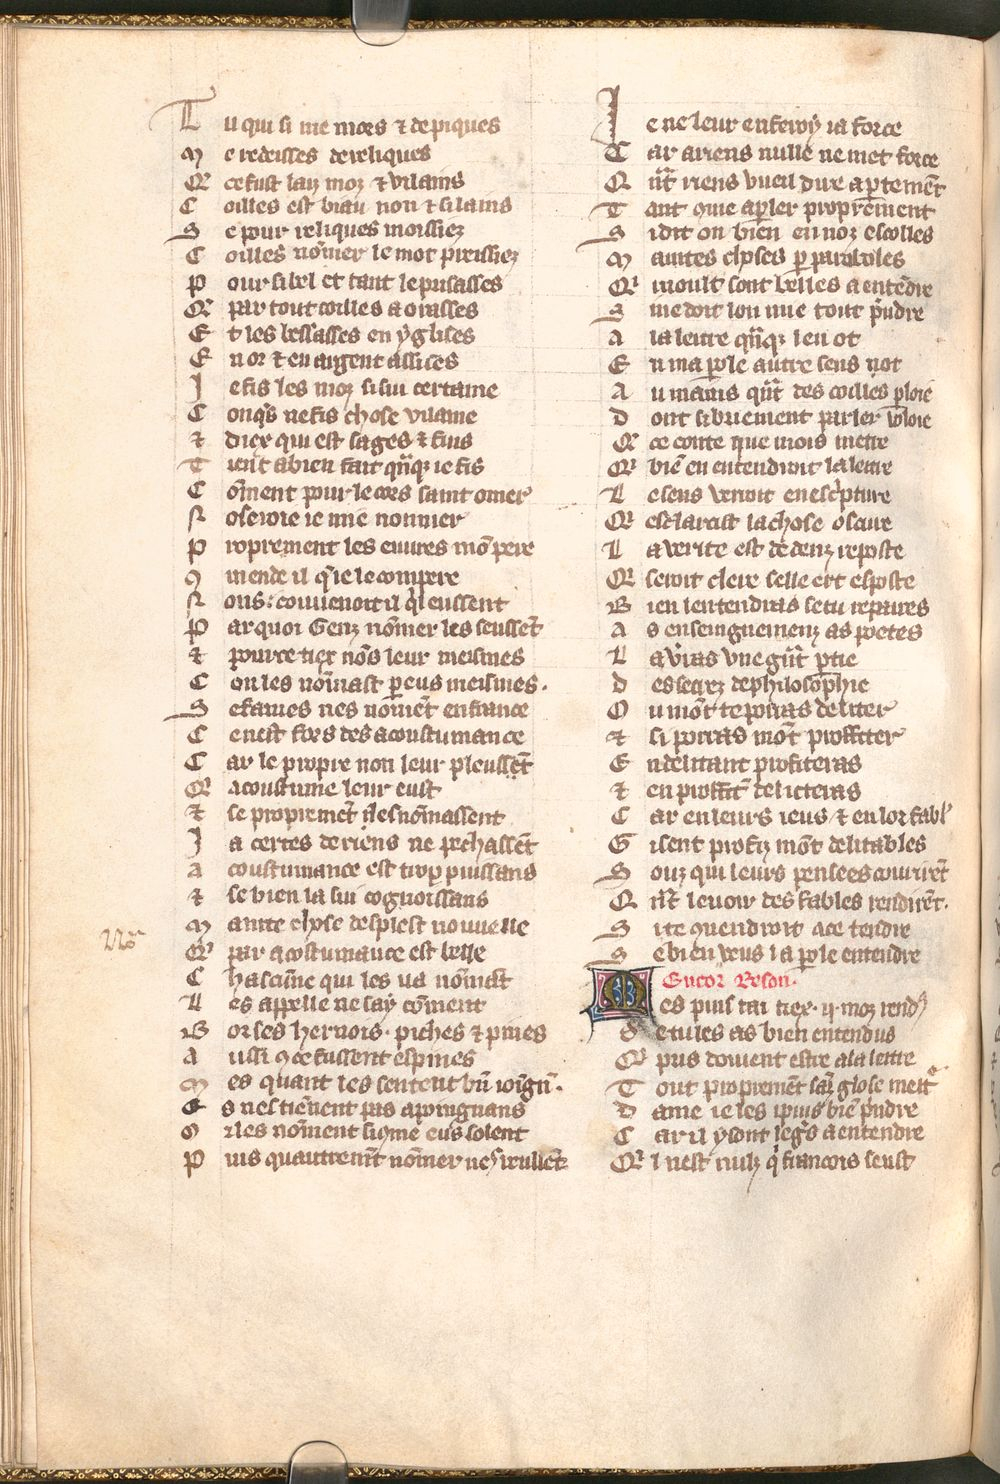 Tu qui si me mors ⁊ de piques
Me redeisses de reliques
Que ce fust laiz moz ⁊ vilains
Coilles est biau non ⁊ si lains
Se pour reliques moissiez
Coilles nõmer le mot preissiez
Pour si bel et tant le prisasses
Que par tout coilles aorasses
Et les besasses en yglises
En or ⁊ en argent assises
Je fis les moz si sui certaine
Conqs ne fis chose vilaine
⁊ diex qui est sages ⁊ fins
Tient a bien fait qñqz ie fis
Cõment pour le cors saint omer
Noseroie ie mie nommer
Proprement les euures mõ pere
9uiende il q ie le compere
Nons couuenoit il qil eussent
Par quoi Genz nõmer les seussẽt
⁊ pour ce tiex nõs leur meismes
Con les nõmast p eus meismes.
Se fames nes nõmẽt en france
Ce nest fors desacoustumance
Car le propre non leur pleussẽt
Qui acoustume leur eust
⁊ se propremẽt les nõmassent
Ja certes de riens ne pechassẽt
Acoustumance est trop puissans
⁊ se bien la sui cognoissans
Mainte chose desplest nouuelle
Que par acostumance est belle
Chascũne qui les va nõmãt
Les appelle ne say cõment
Borses hernois. piches ⁊ pines
Aussi 9 ce fussent espines
Mes quant les sentent bñ ioignñ.
Es nes tiẽnent pas a poingnans
Or les nõment si 9me eus solent
Puis quautremẽt nõmer nes veullẽt
No
Je ne leur en feroy ia force
Car a riens nulle ne met force
Qñt riens vueil dire aptemẽt
Tant 9me a pler proprement
Si dit on bien en noz escolles
Maintes choses p paraboles
Que moult sont belles a entẽdre
Si ne doit lon mie tout pñdre
A la lettre qñqz len ot
En ma pole autre sens not
Au mains qñt des coilles ploie
Dont si briement parler voloie
Que ce conte que mois mettre
Que bien en entendroit la lettre
Le sens verroit en escpture
Que esclarcist la chose oscure
La verite est dedenz reposte
Que seroit clere selle ert esposte
Bien lentendras se tu repaires
As enseingnemenz as poetes
La vras vne gñt ptie
Des secrez de philosophie
Ou mõt te porras deliter
⁊ si porras mõt proffiter
En delitant profiteras
⁊ en proffit deliteras
Car en leurs ieus ⁊ en lor fabl
Gisent profiz mõt delitables
Souz qui leurs pensees couurirẽt
Qñt le voir des fables vendirẽt.
Si te quendroit a ce tendre
Se bien veus la pole entendre
Lacteur Reson.
Mes puis tai tiex .ij. moz rendz
Et tu les as bien entendus
Que pris doiuent estre a la lettre
Tout proprement sãz glose mettre
Dame ie les i puis biẽ pñdre
Car il y sont legs a entendre
Que il nest nulz q francois seust